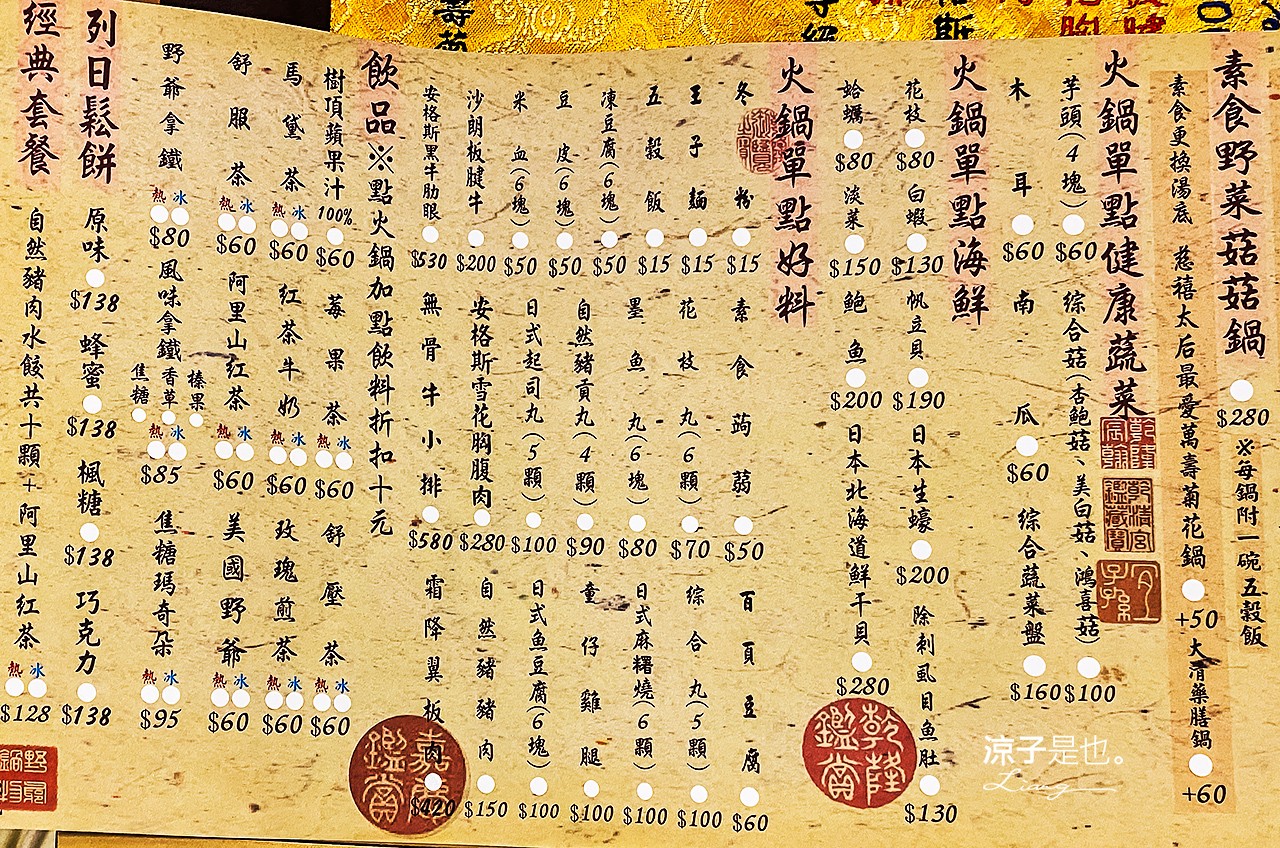 素食野菜菇菇鍋 $280 ※每鍋附一碗五穀飯
素食更換湯底 慈禧太后最愛萬壽菊花鍋 +50 大清藥膳鍋 +60
火鍋單點健康蔬菜
芋頭(4塊) $60 綜合菇(杏鮑菇、美白菇、鴻喜菇) $100
木耳 $60 南瓜 $60 綜合蔬菜盤 $160
火鍋單點海鮮
花枝 $80 白蝦 $130 帆立貝 $190 日本生蠔 $200 除刺虱目魚肚 $130
蛤蠣 $80 淡菜 $150 鮑魚 $200 日本北海道鮮干貝 $280
火鍋單點好料
冬粉 $15 素食蒟蒻 $50 百頁豆腐 $60
王子麵 $15 花枝丸(6顆) $70 綜合丸(5顆) $100
五穀飯 $15 墨魚丸(6塊) $80 日式麻糬燒(6顆) $100
凍豆腐(6塊) $50 自然豬貢丸(4顆) $90 童仔雞腿 $100
豆皮(6塊) $50 日式起司丸(5顆) $100 日式魚豆腐(6塊) $100
米血(6塊) $50 安格斯雪花胸腹肉 $280 自然豬豬肉 $150
沙朗板腱牛 $200 無骨牛小排 $580 霜降翼板肉 $420
安格斯黑牛肋眼 $530
飲品※點火鍋加點飲料折扣十元
樹頂蘋果汁100% $60 莓果茶 熱 冰 $60 舒壓茶 熱 冰 $60
馬黛茶 熱 冰 $60 紅茶牛奶 熱 冰 $60 玫瑰煎茶 熱 冰 $60
舒服茶 熱 冰 $60 阿里山紅茶 熱 冰 $60 美國野爺 熱 冰 $60
野爺拿鐵 熱 冰 $80 風味拿鐵 榛果 香草 焦糖 熱 冰 $85 焦糖瑪奇朵 熱 冰 $95
列日鬆餅 原味 $138 蜂蜜 $138 楓糖 $138 巧克力 $138
經典套餐 自然豬肉水餃共十顆+阿里山紅茶 熱 冰 $128
涼子是也。
Liang